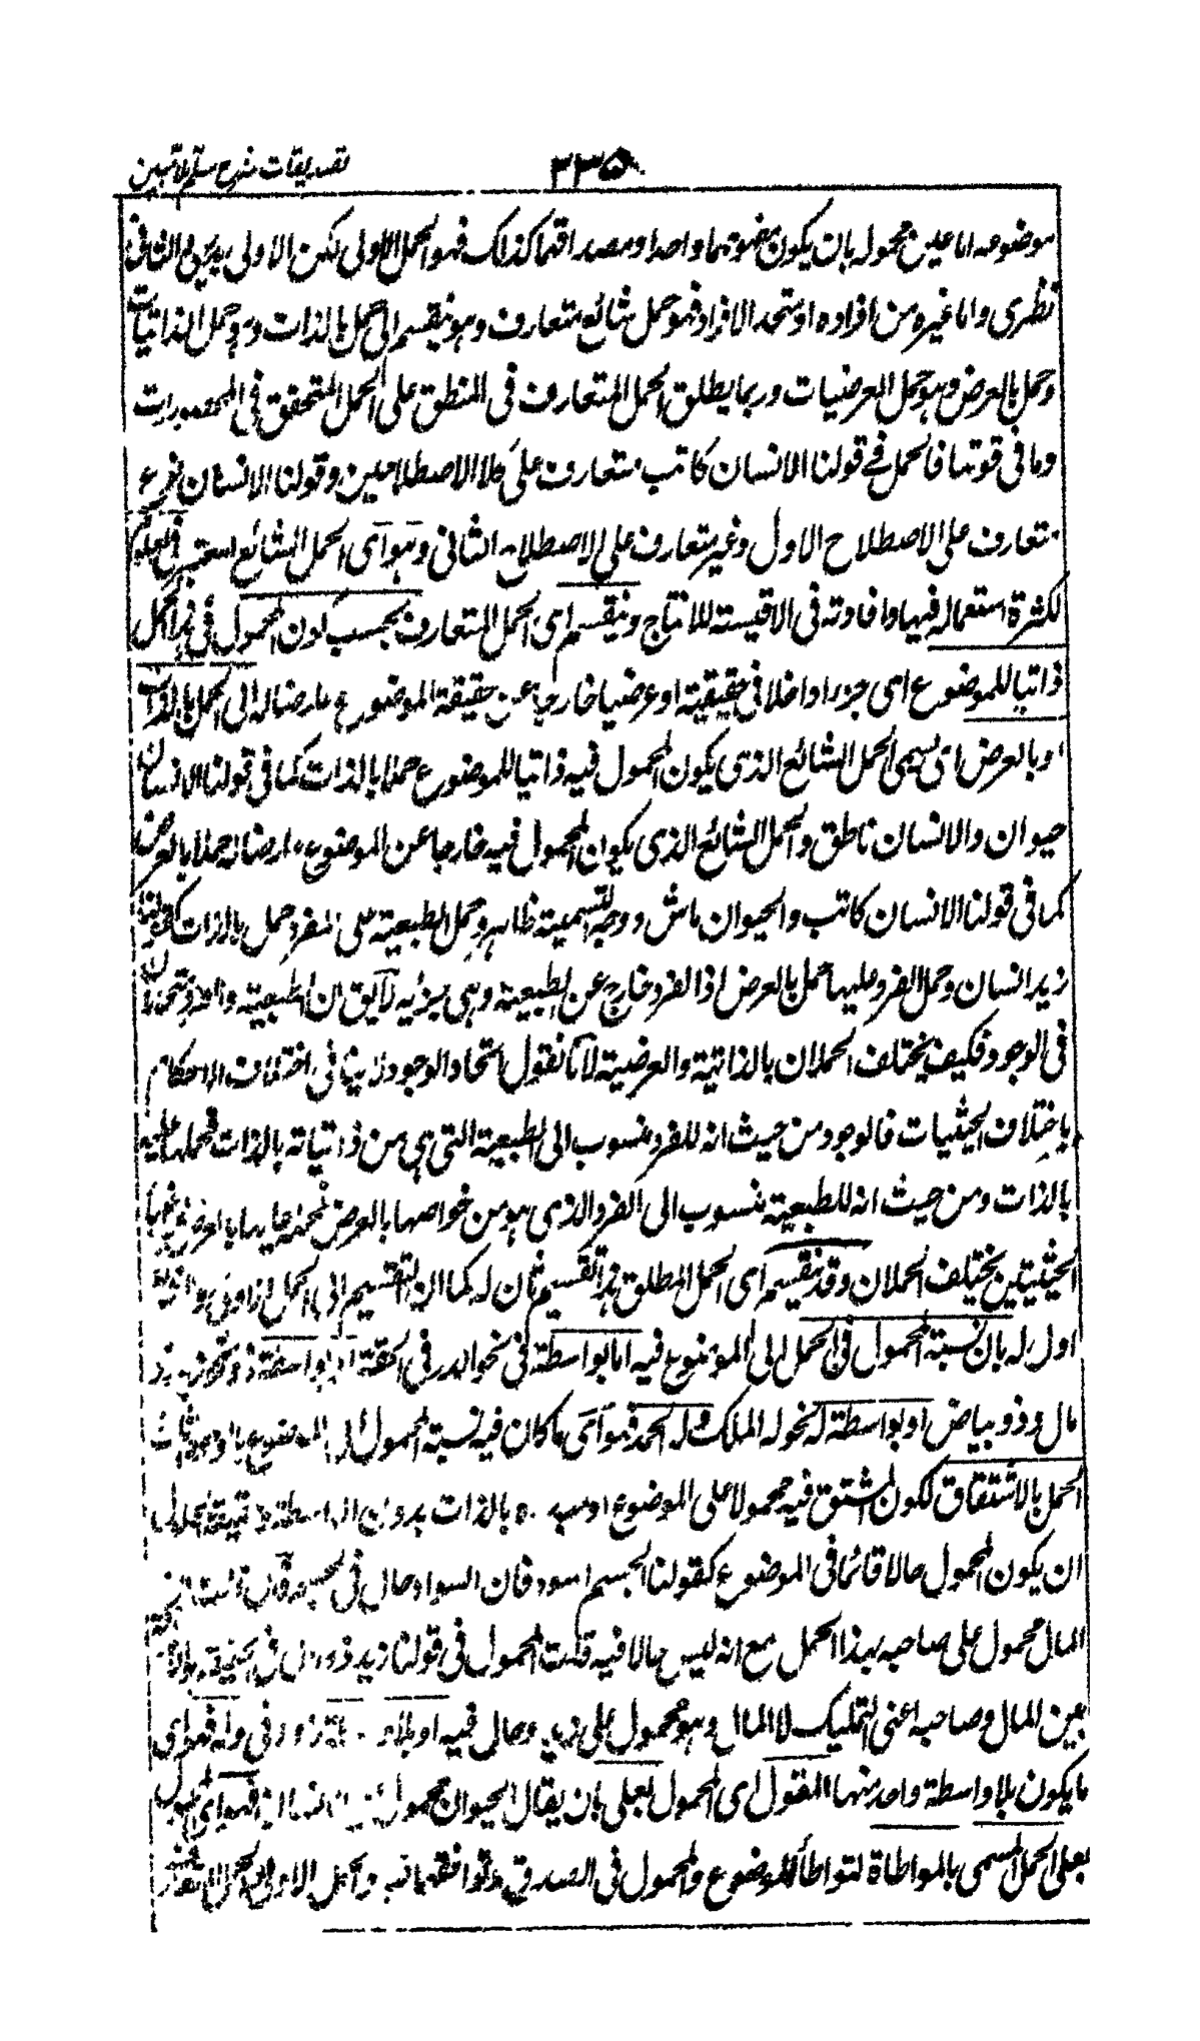 تصديقات شرح سلم ملا مبين
٢٣٥
موضوعه اما عين محموله بان يكون مفهومهما واحدا ومصداقهما كذلك فهو الحمل الاولى لكن الاولى بديهى والثانى
نظرى واما غيره من افراده او متحد الافراد فهو حمل شائع متعارف وهو ينقسم الى حمل بالذات وهو حمل الذاتيات
وحمل بالعرض وهو حمل العرضيات وربما يطلق الحمل المتعارف فى المنطق على الحمل المتحقق فى المحصورات
وما فى قوتها فالحمل فى قولنا الانسان كاتب متعارف على كلا الاصطلاحين وقولنا الانسان نوع
متعارف على الاصطلاح الاول وغير متعارف على الاصطلاح الثانى وهو اى الحمل الشائع المعتبر فى العلوم
لكثرة استعماله فيها وافادته فى الاقيسة للانتاج وينقسم اى الحمل المتعارف بحسب كون المحمول فى هذا الحمل
ذاتيا للموضوع اى جزءا داخلا فى حقيقته او عرضيا خارجا عن حقيقة الموضوع عارضا له الى الحمل بالذات
او بالعرض اى يسمى الحمل الشائع الذى يكون المحمول فيه ذاتيا للموضوع حملا بالذات كما فى قولنا الانسان
حيوان والانسان ناطق والحمل الشائع الذى يكون المحمول فيه خارجا عن الموضوع عارضا له حملا بالعرض
كما فى قولنا الانسان كاتب والحيوان ماش ووجه التسمية ظاهر وحمل الطبيعة على الفرد حمل بالذات كقولنا
زيد انسان وحمل الفرد عليها حمل بالعرض اذ الفرد خارج عن الطبيعة وهى جزئيه لا يق ان الطبيعة والفرد متحدان
فى الوجود فكيف يختلف الحملان بالذاتية والعرضية لانا نقول اتحاد الوجود لا ينافى اختلاف الاحكام
باختلاف الحيثيات فالوجود من حيث انه للفرد منسوب الى الطبيعة التى هى من ذاتياته بالذات فحملها عليه
بالذات ومن حيث انه للطبيعة منسوب الى الفرد الذى هو من خواصها بالعرض فحمله عليها بالعرض
الحيثيتين يختلف الحملان وقد ينقسم اى الحمل المطلق هذا تقسيم ثان له كما ان التقسيم الى الحمل الاولى
اول له بان نسبة المحمول فى الحمل الى الموضوع فيه اما بواسطة فى نحو الدر فى الحقة او بواسطة ذو نحو زيد ذو
مال وذو بياض او بواسطة له نحو له الملك وله الحمد فهو اى ما كان فيه نسبة المحمول الى الموضوع
الحمل بالاشتقاق لكون المشتق فيه محمولا على الموضوع بالذات بدون الواسطة
ان يكون المحمول حالا قائما فى الموضوع كقولنا الجسم اسود فان السواد حال فى الجسم
المال محمول على صاحبه بهذا الحمل مع انه ليس حالا فيه قلت المحمول فى قولنا زيد ذو مال فى الحقيقة
بين المال وصاحبه اعنى التملك لا المال وهو محمول على زيد وحال فيه او بلا
ما يكون بلا واسطة واحد منها المقول اى المحمول بعلى بان يقال الحيوان محمول
بعلى الحمل المسمى بالمواطاة لتواطأ الموضوع والمحمول فى الصدق وتوافقهما فيه والحمل الاولى